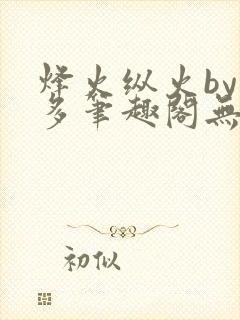 烽火纵火by
多笔趣阁無
初似